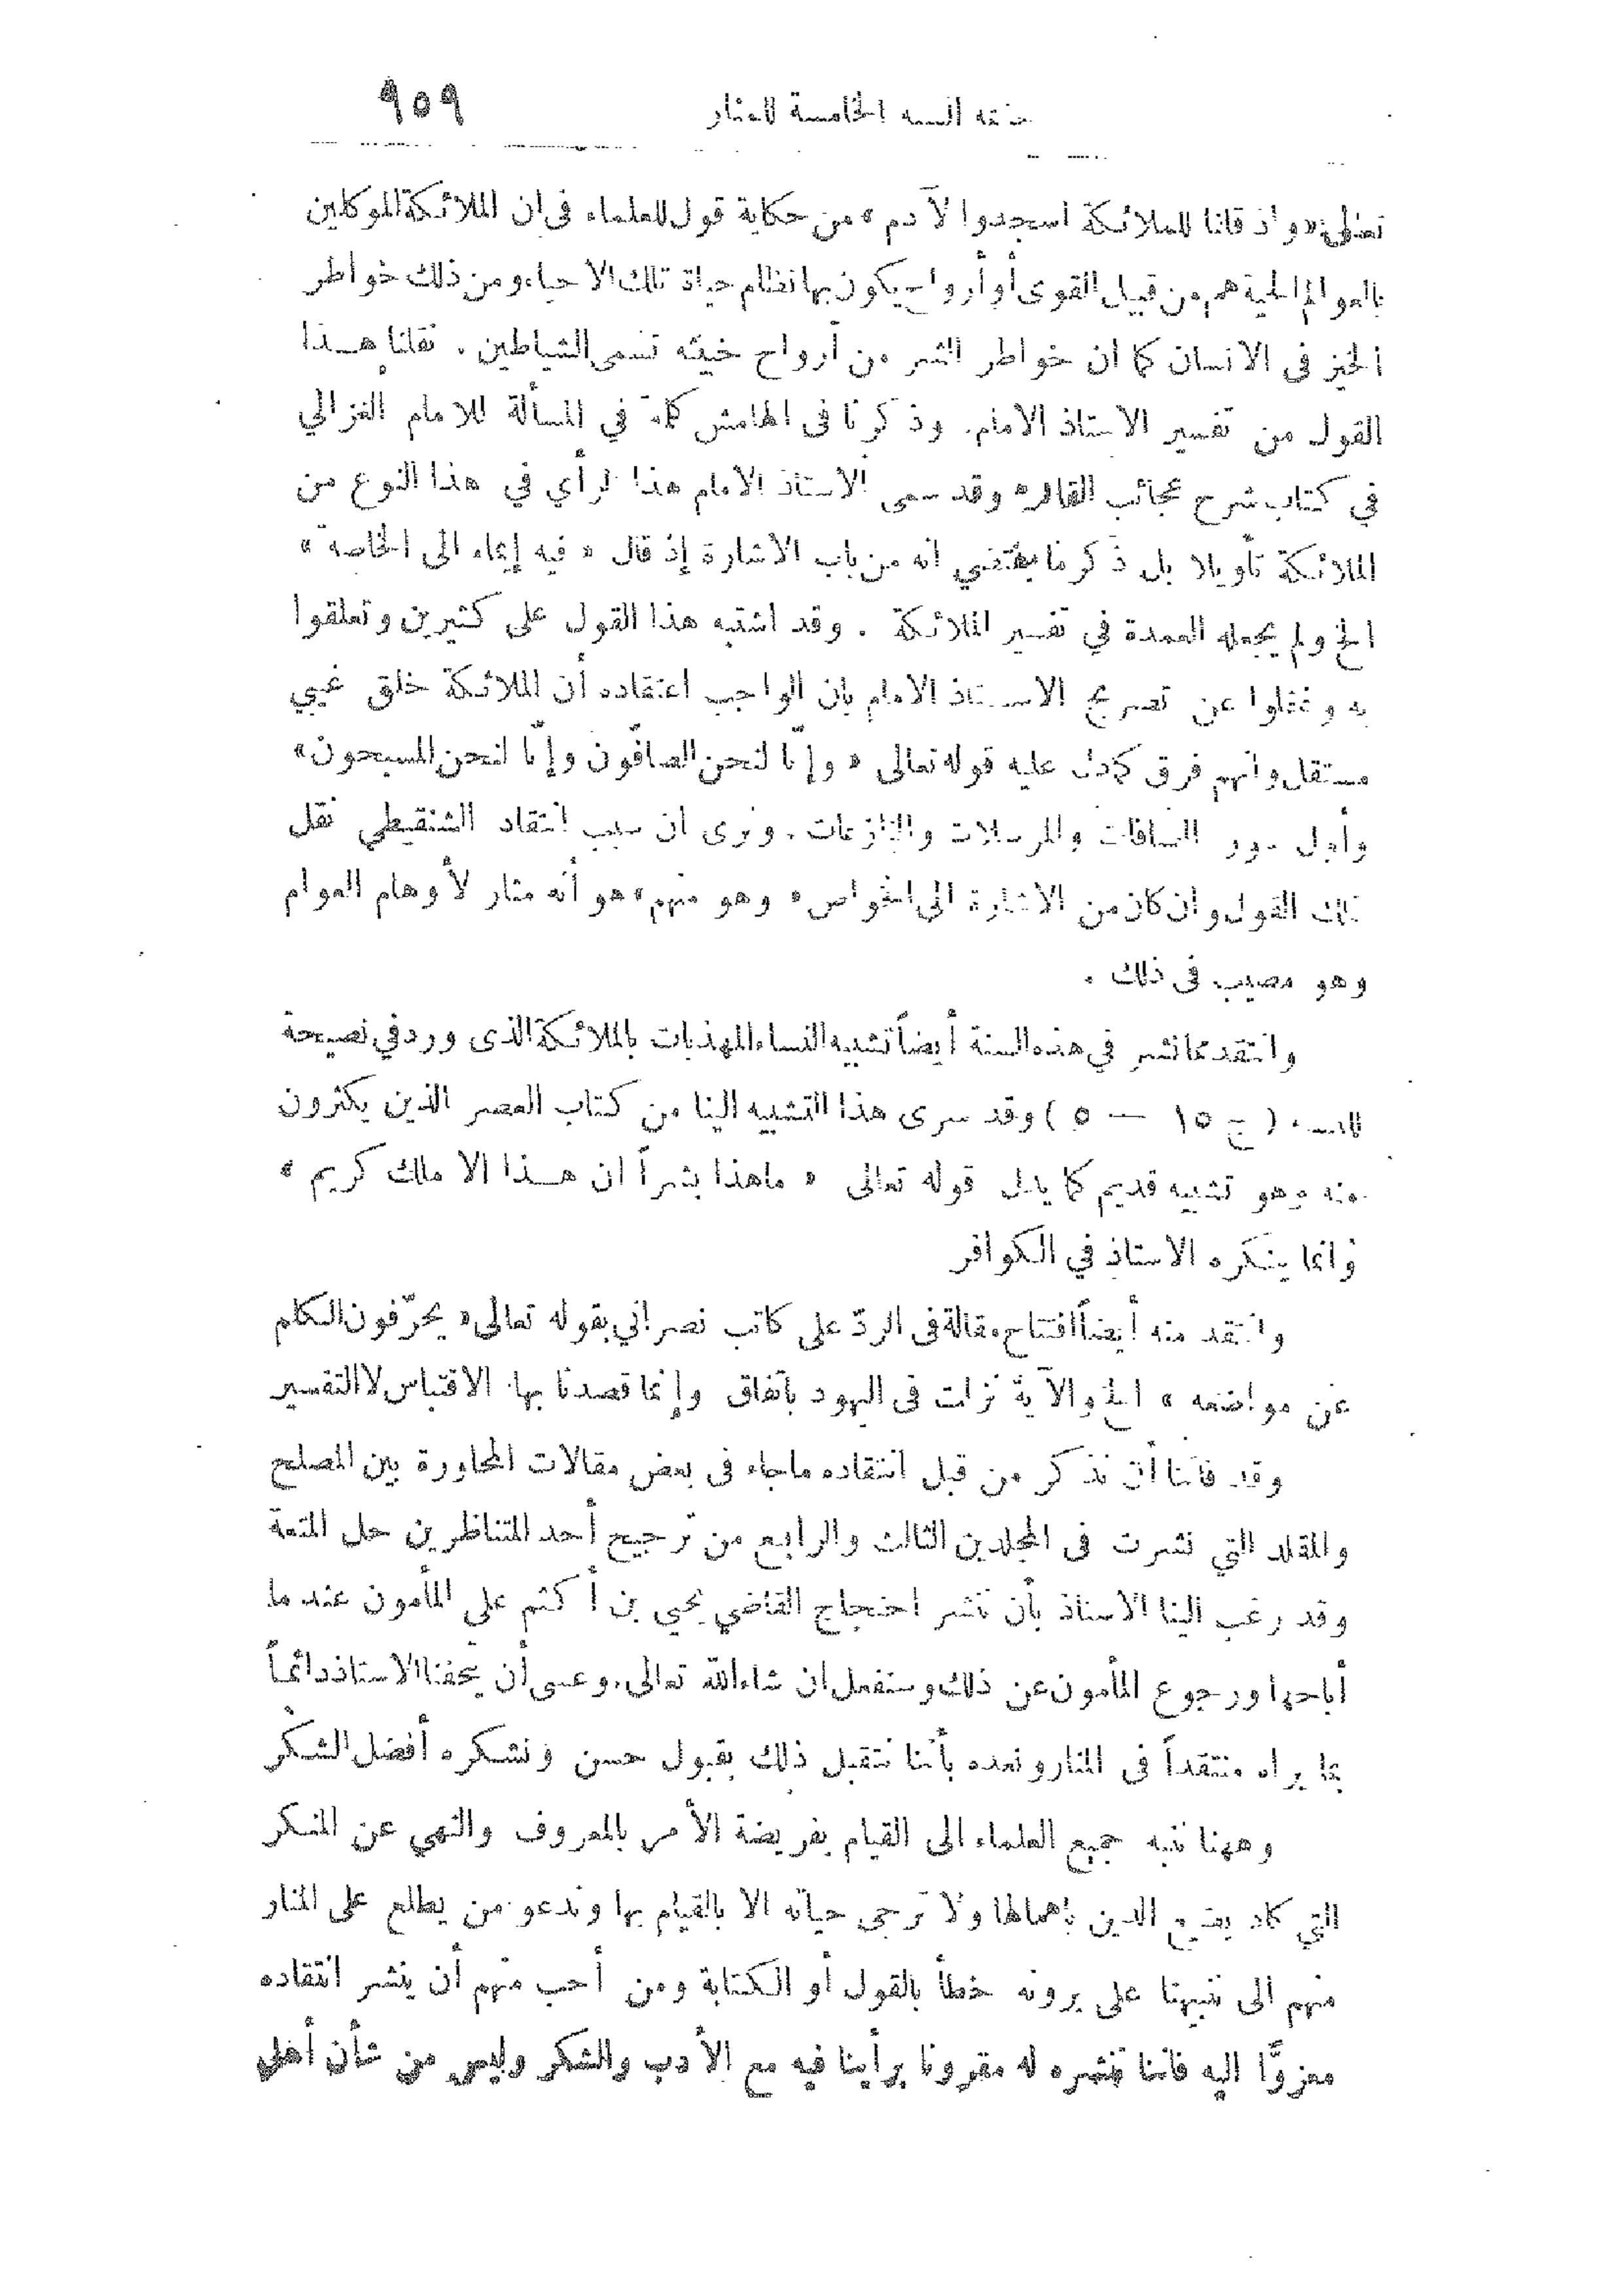 خاتمة السنة الخامسة للمنار ٩٥٩
تعالى «واذ قلنا للملائكة اسجدوا لآدم» من حكاية قول للعلماء في ان الملائكة الموكلين
بالعوالم الحية هم من قبيل القوى أو أرواح يكون بها نظام حياة تلك الاحياء ومن ذلك خواطر
الخير في الانسان كما ان خواطر الشر من أرواح خبيثة تسمى الشياطين . نقلنا هذا
القول من تفسير الاستاذ الامام. وذكرنا في الهامش كلمة في المسألة للامام الغزالي
في كتاب شرح عجائب القلب وقد سمى الاستاذ الامام هذا الرأي في هذا النوع من
الملائكة تأويلا بل ذكر ما يقتضي انه من باب الاشارة إذ قال « فيه إيماء الى الخاصة »
الخ ولم يجعله العمدة في تفسير الملائكة . وقد اشتبه هذا القول على كثيرين وتعلقوا
به وغفلوا عن تصريح الاستاذ الامام بان الواجب اعتقاده أن الملائكة خلق غيبي
مستقل وانهم فرق كما دل عليه قوله تعالى « وإنّا لنحن الصافّون وإنّا لنحن المسبحون»
وأول سور الصافات والمرسلات والنازعات . ونرى ان سبب انتقاد الشنقيطي نقل
ذلك القول وان كان من الاشارة الى الخواص « وهو منهم » هو أنه مثار لأوهام العوام
وهو مصيب في ذلك .
وانتقد مما نشر في هذه السنة أيضاً تشبيه النساء المهذبات بالملائكة الذي ورد في نصيحة
للنساء ( ج ١٥ — ٥ ) وقد سرى هذا التشبيه الينا من كتاب العصر الذين يكثرون
منه وهو تشبيه قديم كما يدل قوله تعالى « ماهذا بشراً ان هذا الا ملك كريم »
وانما ينكره الاستاذ في الكوافر
وانتقد منه أيضاً افتتاح مقالة في الردّ على كاتب نصراني بقوله تعالى « يحرّفون الكلم
عن مواضعه » الخ والآية نزلت في اليهود باتفاق وإنما قصدنا بها الاقتباس لا التفسير
وقد فاتنا أن نذكر من قبل انتقاده ماجاء في بعض مقالات المحاورة بين المصلح
والمقلد التي نشرت في المجلدين الثالث والرابع من ترجيح أحد المتناظرين حل المتعة
وقد رغب الينا الاستاذ بأن ننشر احتجاج القاضي يحيى بن أكثم على المأمون عند ما
أباحها ورجوع المأمون عن ذلك وسنفعل ان شاء الله تعالى، وعسى أن يتحفنا الاستاذ دائماً
بما يراه منتقداً في المنار ونعده بأننا نتقبل ذلك بقبول حسن ونشكره أفضل الشكر
وههنا ننبه جميع العلماء الى القيام بفريضة الأمر بالمعروف والنهي عن المنكر
التي كاد يضيع الدين باهمالها ولا ترجى حياته الا بالقيام بها وندعو من يطلع على المنار
منهم الى تنبيهنا على يرونه خطأ بالقول أو الكتابة ومن أحب منهم أن ينشر انتقاده
معزوًّا اليه فاننا ننشره له مقرونا برأينا فيه مع الأدب والشكر وليس من شأن أهل